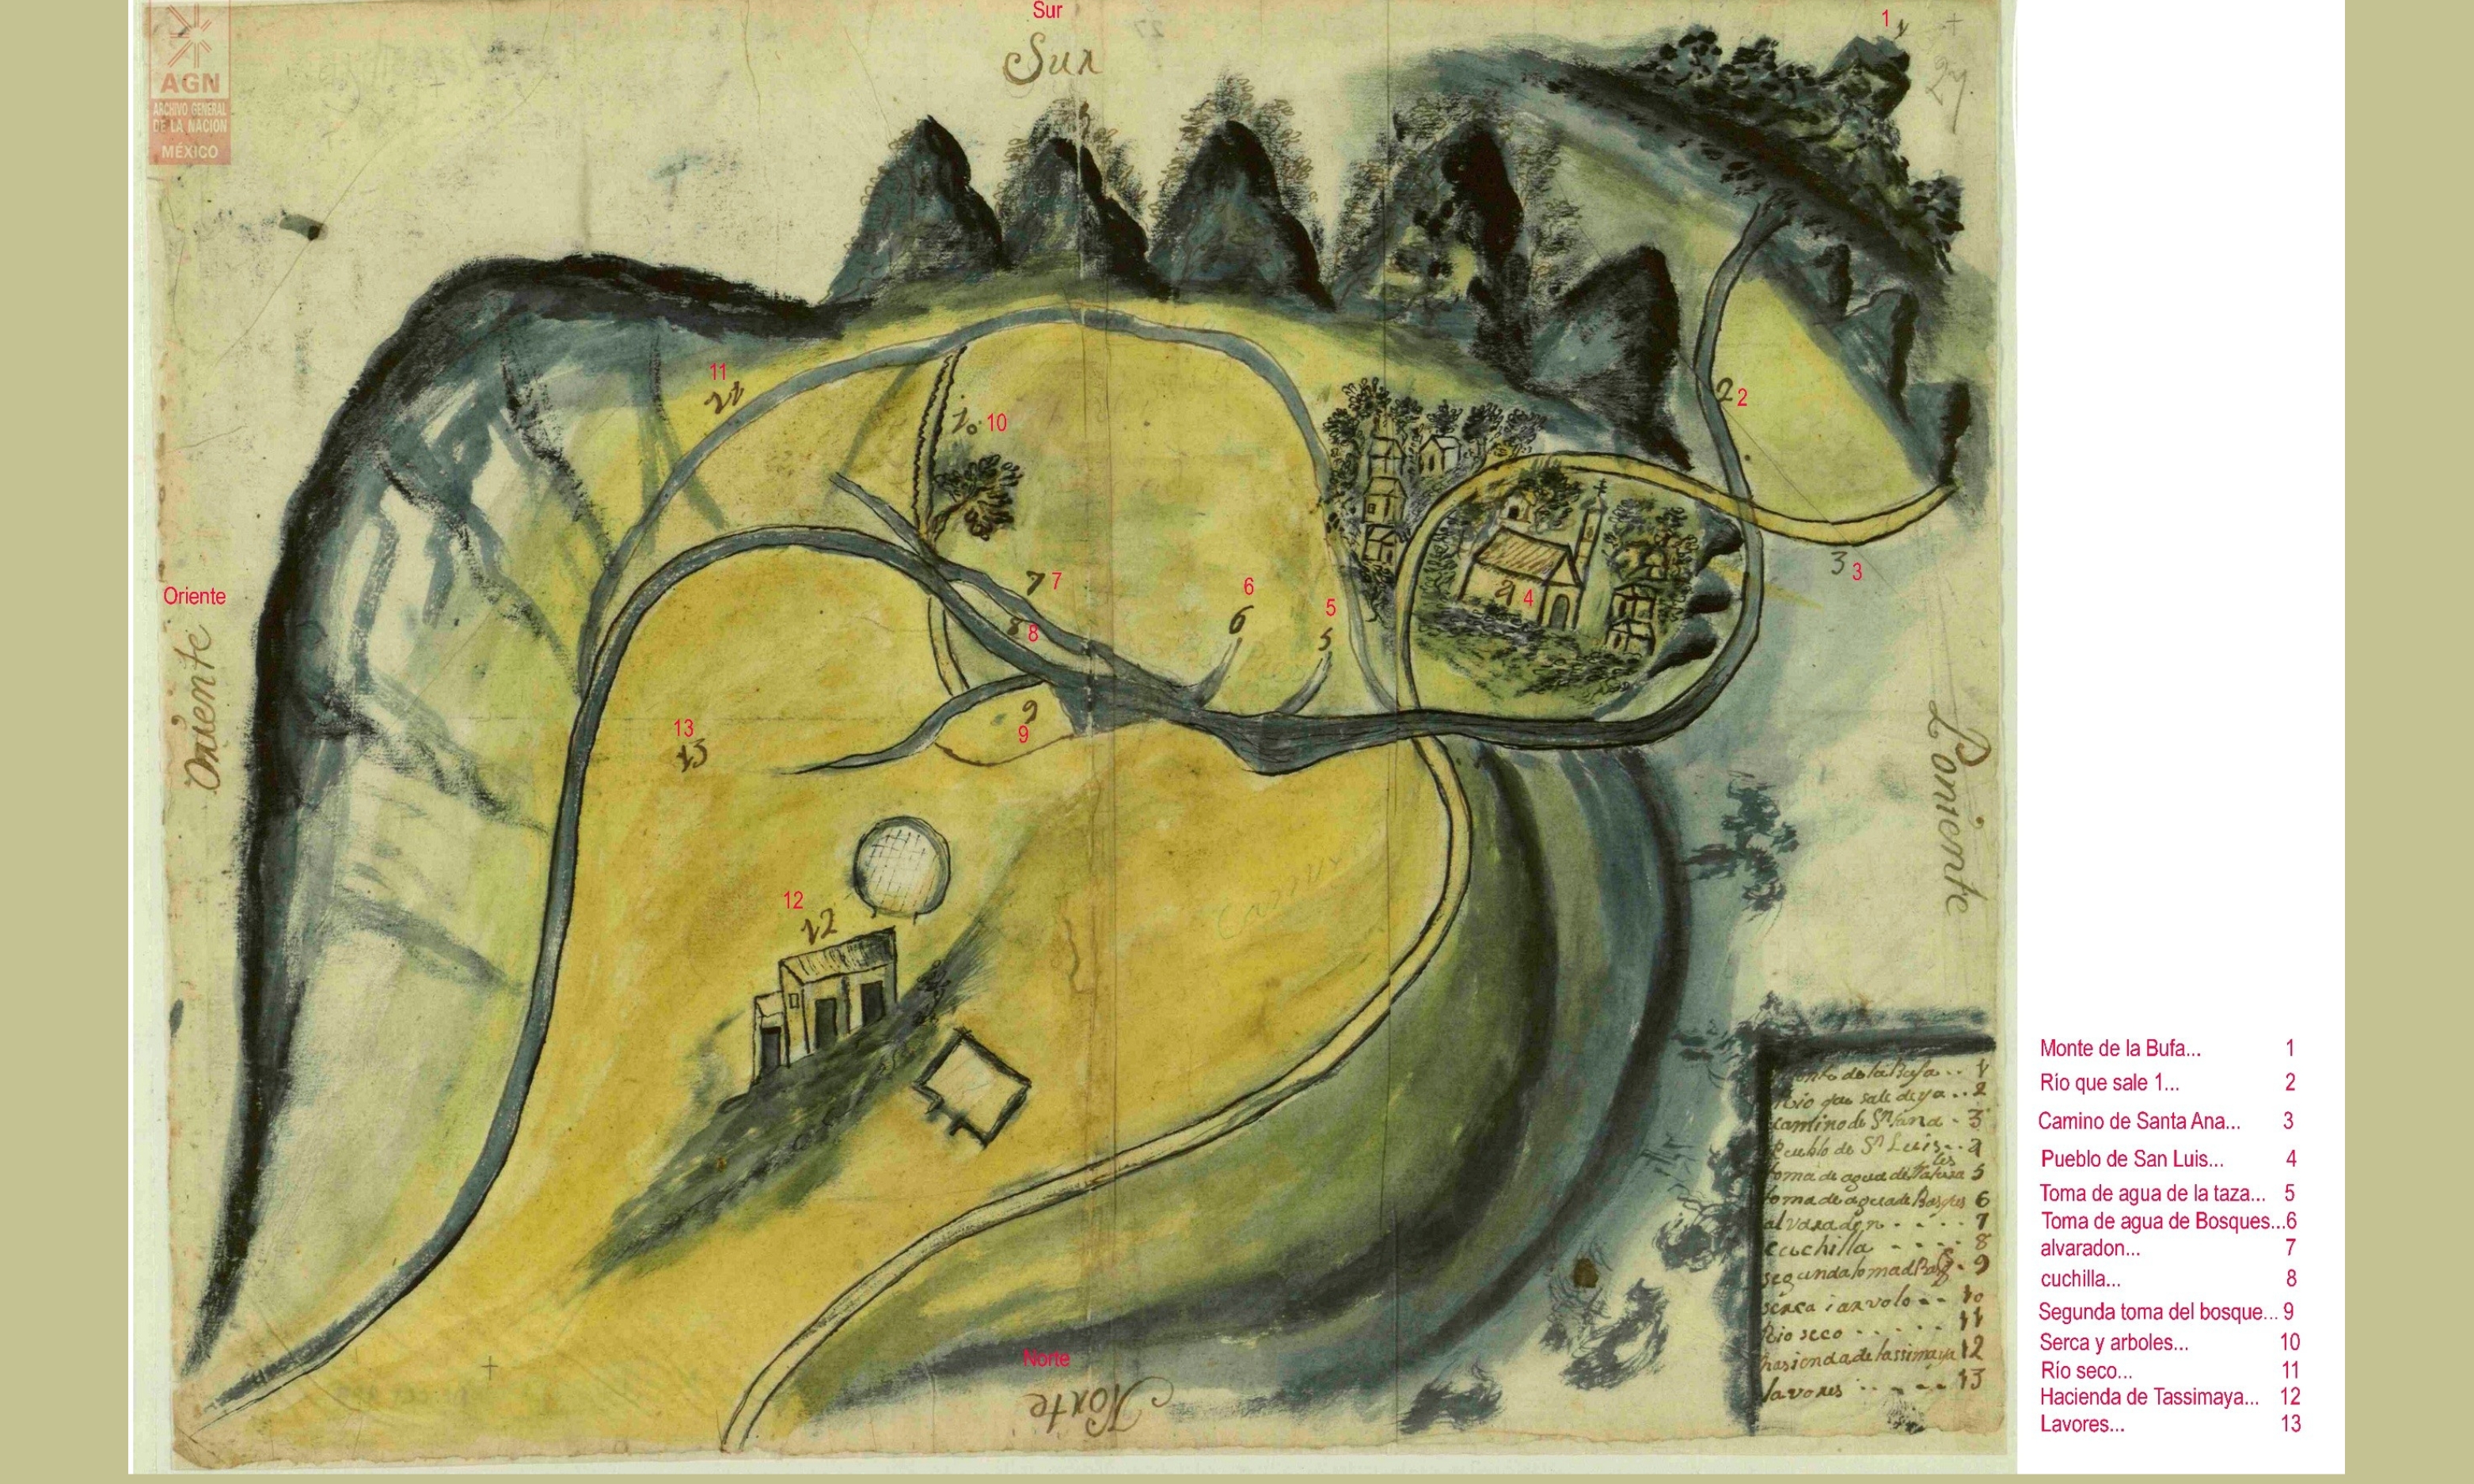 AGN
ARCHIVO GENERAL
DE LA NACION
MÉXICO
Sur
Sur
27
1
1
27
11
11
10
10
2
2
3
3
Oriente
Oriente
7
7
8
8
6
6
5
5
4
4
9
9
13
13
12
12
Poniente
Norte
Norte
Monte de la Bufa... 1
Río que sale 1... 2
Camino de Santa Ana... 3
Pueblo de San Luis... 4
Toma de agua de la taza... 5
Toma de agua de Bosques...6
alvaradon... 7
cuchilla... 8
Segunda toma del bosque... 9
Serca y arboles... 10
Río seco... 11
Hacienda de Tassimaya... 12
Lavores... 13
monte de la Bufa.. 1
Rio que sale de ya.. 2
camino de Sn tana - 3
Pueblo de Sn Luis.. 4
toma de agua de 5
toma de agua de Basques 6
alvaradon - - - - 7
cuchilla - - - - 8
segunda toma d - 9
serca i arvolo - - 10
Rio seco - - - - - 11
hasienda de tassimaya 12
lavores - - - - - 13